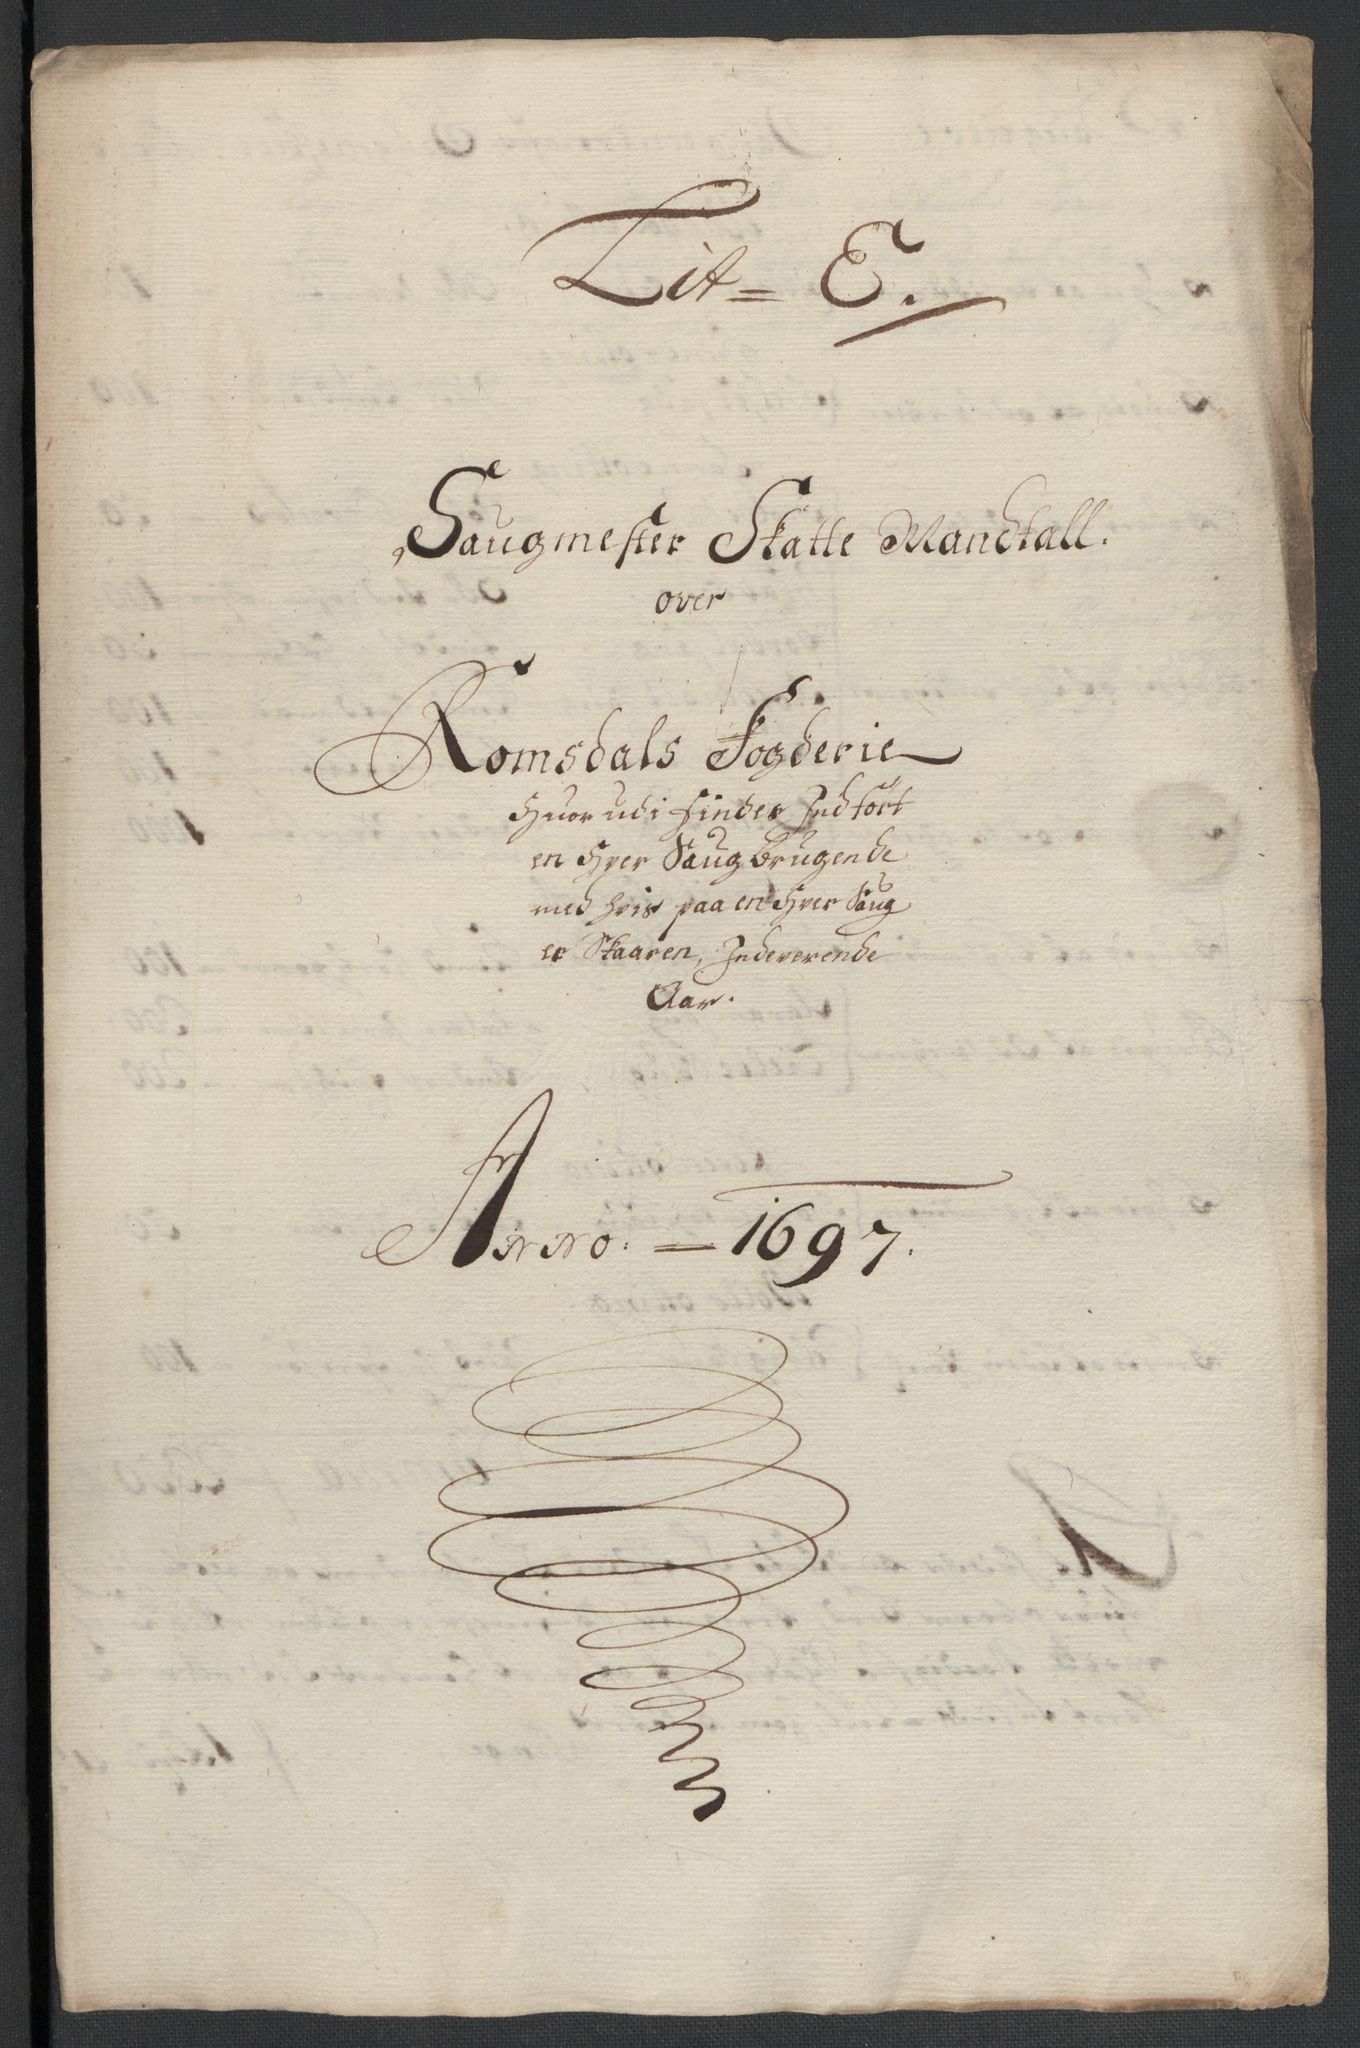 Lit= E.
Saugmester Skatte Mandtall.
over
Romsdals Fogderie
Huor udi findes Indført
en hver Saugbrugende
med hvis paa en hver Saug
er Skaaren, Indeverende
Aar.
Anno. = 1697.